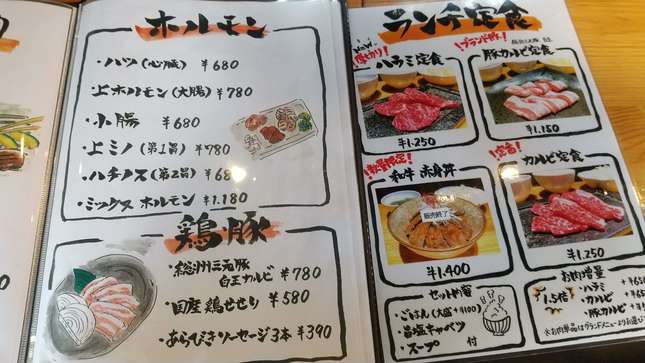 ホルモン
・ハツ(心臓) ¥680
・上ホルモン(大腸) ¥780
・小腸 ¥680
・上ミノ(第1胃) ¥780
・ハチノス(第2胃) ¥68
・ミックスホルモン ¥1.180
鶏・豚
・総州三元豚
白王カルビ ¥780
・国産鶏せせり ¥580
・あらびきソーセージ3本 ¥390
ランチ定食
NEW
厚切り!
ハラミ定食
¥1.250
ブランド豚!
豚カルビ定食
¥1.180
数量限定!
和牛 赤身丼
販売終了
¥1.400
定番!
カルビ定食
¥1.250
セット内容
・ごはん(大盛+¥100)
・旨塩キャベツ
・スープ 付
お肉増量
1.5倍
・ハラミ
・カルビ
・豚カルビ
※お肉単品はグランドメニューよりお選び